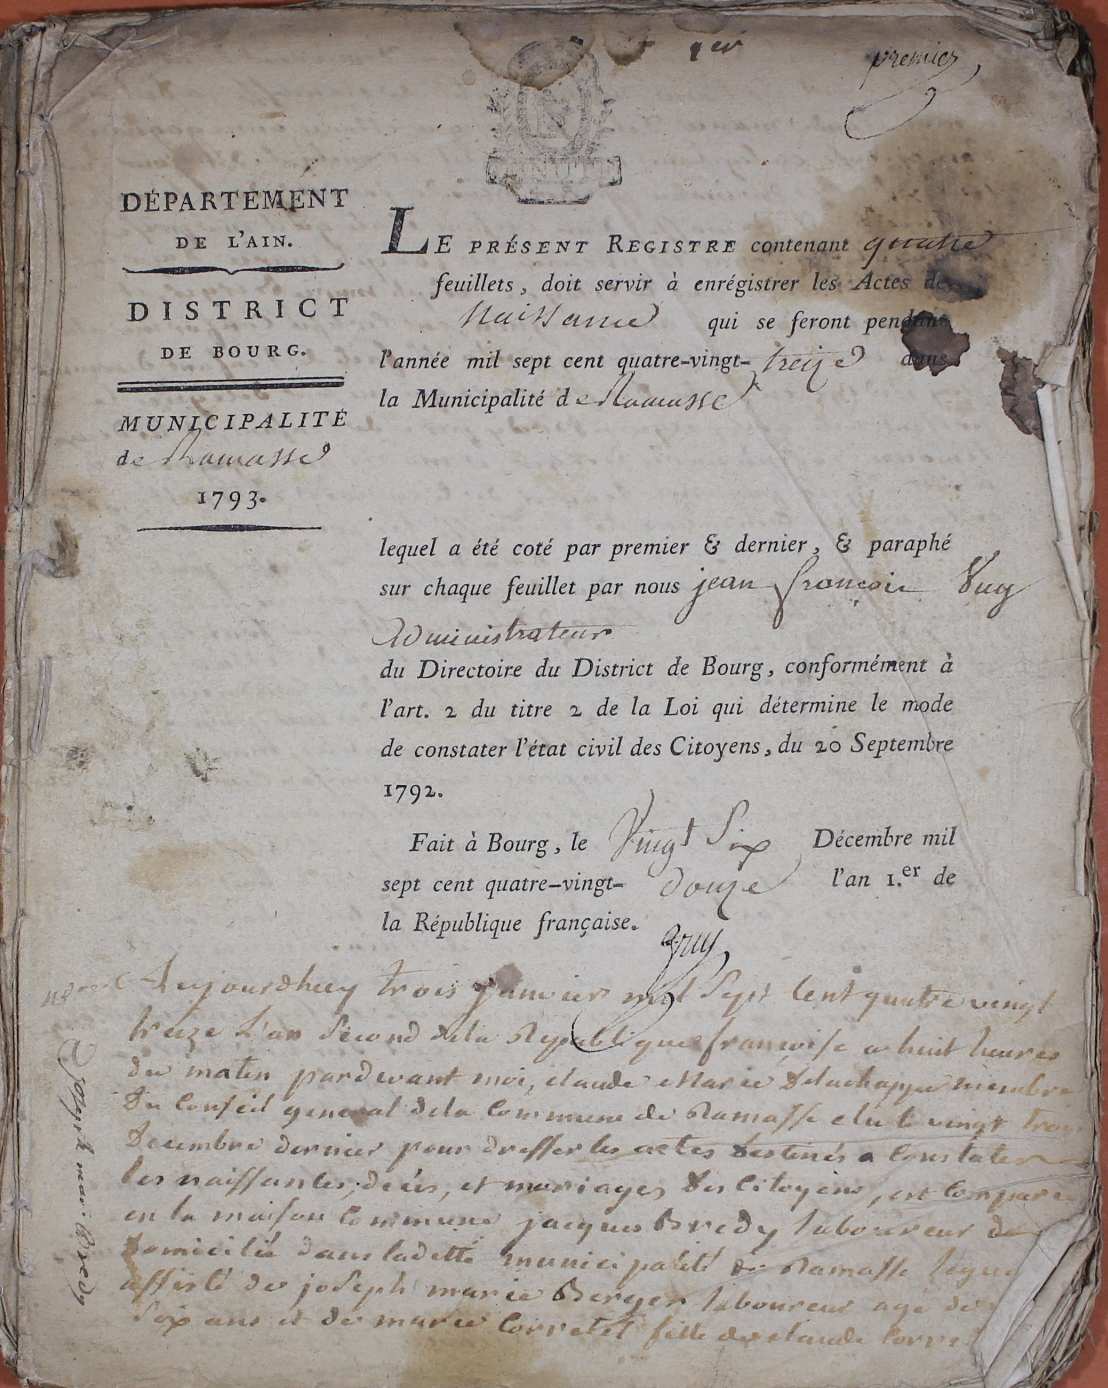 1er
premier
DÉPARTEMENT
DE L'AIN.
DISTRICT
DE BOURG.
MUNICIPALITÉ
de Ramasse
1793.
LE PRÉSENT REGISTRE contenant quatre
feuillets, doit servir à enrégistrer les Actes de
Naissance qui se feront pendant
l'année mil sept cent quatre-vingt-treize dans
la Municipalité de Ramasse
lequel a été coté par premier & dernier, & paraphé
sur chaque feuillet par nous jean françois Vuy
Administrateur
du Directoire du District de Bourg, conformément à
l'art. 2 du titre 2 de la Loi qui détermine le mode
de constater l'état civil des Citoyens, du 20 Septembre
1792.
Fait à Bourg, le Vingt Six Décembre mil
sept cent quatre-vingt-douze l'an 1.er de
la République française.
Aujourdhuy trois janvier mil Sept Cent quatre vingt
treize L'an Second de la Republique françoise a huit heures
du matin pardevant moi, claude Marie membre
Du Conseil general dela Commune de Ramasse elu le vingt trois
Decembre dernier pour dresser les actes destinés a Constater
les naissances, décés, et mariages des Citoyens, est Comparu
en la maison Commune jacques Bredy laboureur
Domicilié dans ladette municipalité de Ramasse
assisté de joseph marie Berger laboureur agé de
Six ans et de marie Corretet fille de claude